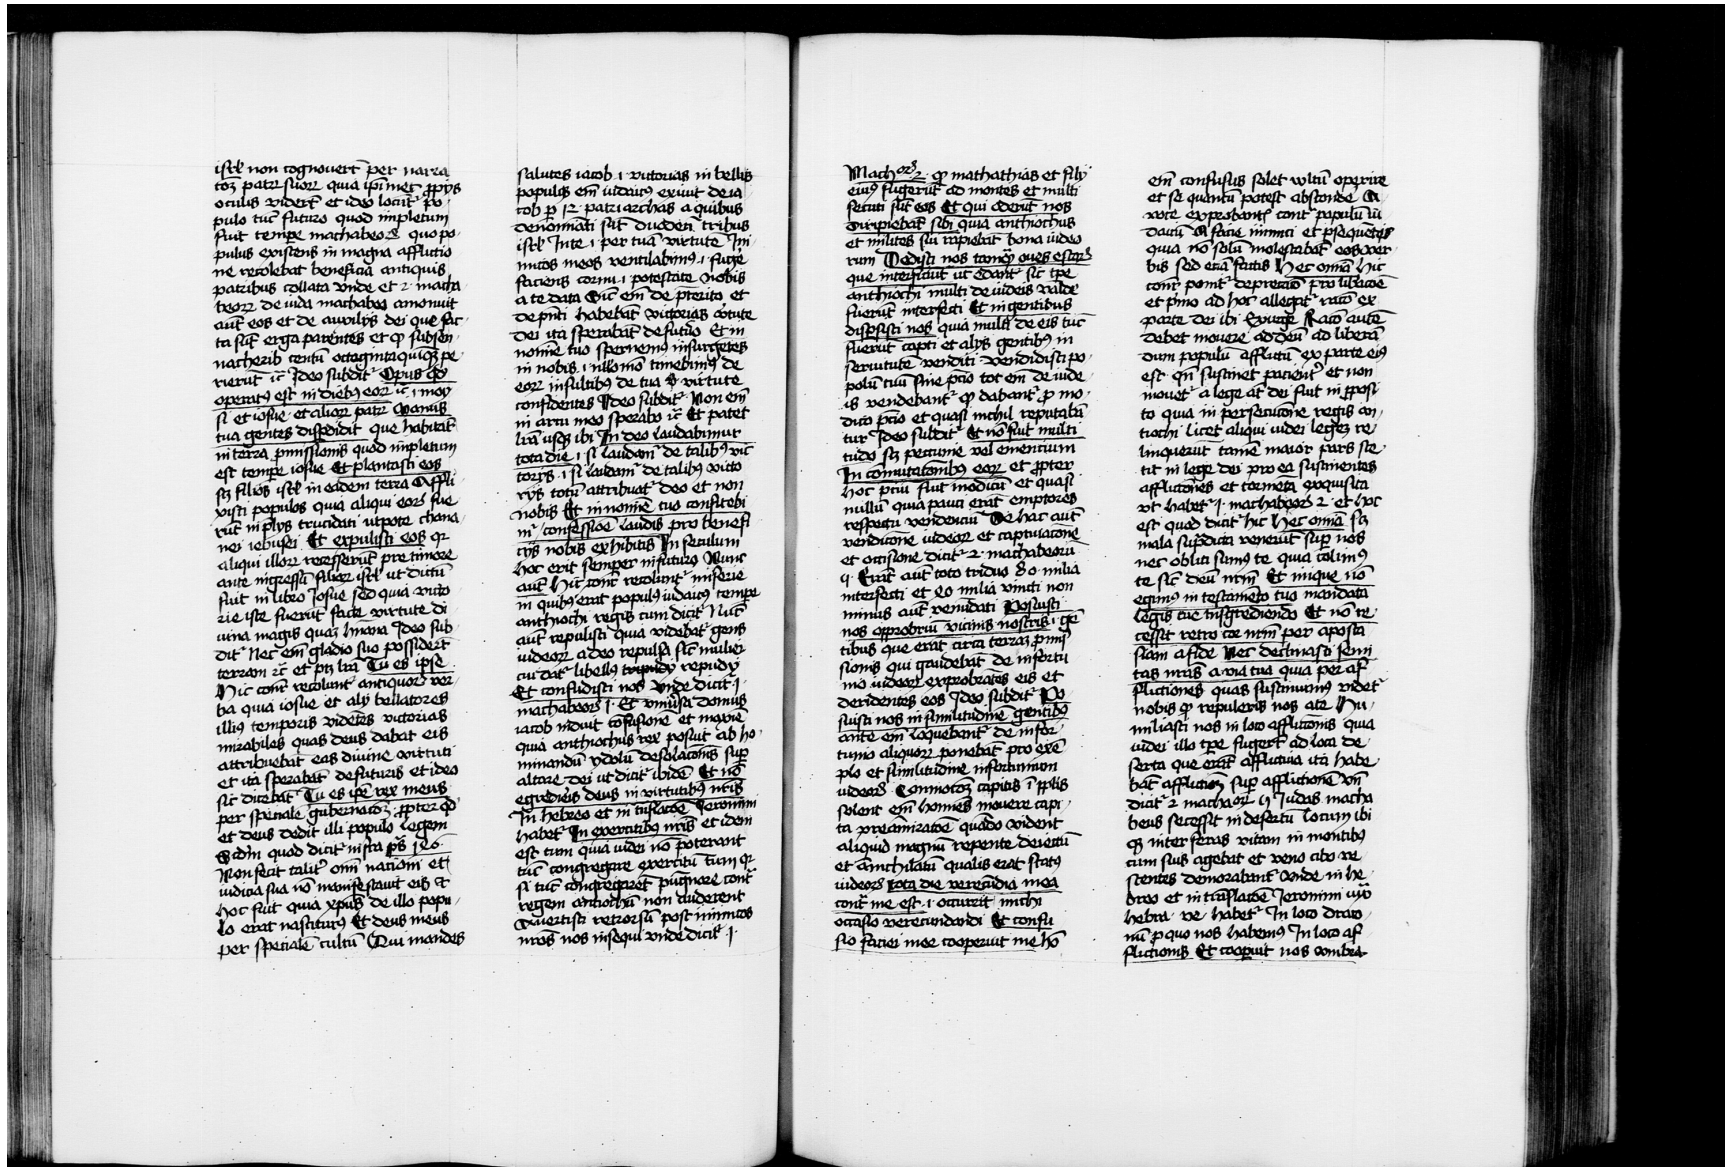 isrl non cognovert̄ per narra
toꝫ patrꝫ suorꝫ quia ip̄imet ꝓprijs
oculis vidert̄ et ideo locut̄ᷣ po
pulo tūc futuro quod impletum
fuit tempe machabeorꝫ quo po
pulus existens in magna afflictio
ne recolebat beneficia antiquis
patribus collata vnde et 2 macha
beorꝫ de iuda machabeo amonuit
aūt eos et de auxilijs dei que fac
ta sūt erga parentes et qꝫ sub sen
nacherib centū octoginta quiqꝫ pe
rierūt ꝛc̄ Ideo subditᷣ Opus qd̄
operatꝰ est in diebꝰ eorꝫ ꝛc̄ .i. moy
si et iosue et aliorꝫ patrꝫ Manus
tua gentes disp̄didit que habitāt
in terra p̄missionis quod impletum
est tempe iosue Et plantasti eos
sꝫ filios isrl in eadem terra Affli
xisti populos quia aliqui eorꝫ fue
rūt in p̄lijs trucidati utpote chana
nei iebusei Et expulisti eos qꝛ
aliqui illorꝫ recesserūt pre timore
ante ingressū filiorꝫ isrl ut dictū
fuit in libro Iosue sed quia victo
rie iste fuerūt facte virtute di
uina magis quaꝫ hūana Ideo sub
ditᷣ Nec em̄ gladio suo possidert̄
terram ꝛc̄ et ptꝫ lr̄a Tu es ipse
Hic cont̄ recolunt antiquorꝫ ver
ba quia iosue et alij bellatores
illiꝰ temporis videtes victorias
mirabiles quas deus dabat eis
attribuebāt eas diuine virtuti
et ita sperabāt de futuris et ideo
sic dicebāt Tu es ip̄e rex meus
per specialē gubernacōꝫ ꝓpter qd̄
et deus dedit illi populo legem
Scdm quod dicitᷣ infra ps̄ 1 26
Non fecit talitᷣ om̄i nationi et
iudicia sua nō manifestauit eis ⁊
hoc fuit quia xp̄us de illo popu
lo erat nasciturꝰ Et deus meus
per specialē cultū Qui mandas
salutes iacob .i. victorias in bellis
populꝰ em̄ iudaicꝰ exiuit de ia
cob p̄ 12 patriarchas a quibus
denominati sūt duodeci tribus
isrl In te .i. per tuā virtutē Ini
micos meos ventilabimꝰ .i. fuge
faciens cornu .i. potestate nobis
a te data Sic em̄ de p̄terito et
de pn̄ti habebāt victorias v̄tute
dei ita sperabāt de futuro Et in
nomine tuo spernemꝰ insurgetes
in nobis .i. nullo mō timebimꝰ de
eorꝫ insultibꝰ de tua virtute
confidentes Ideo subditᷣ Non em̄
in arcu meo sperabo ꝛc̄ Et patet
lr̄a usqꝫ ibi In deo laudabimur
tota die .i. si laudamᷣ de talibꝰ vic
torijs .i. si laudamᷣ de talibꝰ victo
rijs totū attribuatᷣ deo et non
nobis Et in nomine tuo confitebi
mᷣ confessioē laudis pro benefi
cijs nobis exhibitis In seculum
hoc erit semper in futuro Nunc
aūt Hic cont̄ recolunt miserie
in quibꝰ erat populꝰ iudaicꝰ tempe
anthiochi regis cum dicitᷣ Nūc
aūt repulisti quia videbāt gens
iudeorꝫ a deo repulsa sic mulier
cui datᷣ libellꝰ repudij
Et confudisti nos vnde dicitᷣ .i.
machabeorꝫ .i. Et vniūsa domus
iacob induit cōfusionē et maxīē
quia anthiochus rex posuit abho
minandū ydolū desolacōnis sup
altare dei ut dicitᷣ ibidē Et nō
egredieris deus in virtutibꝰ nr̄is
In hebreo et in trāslacōe Ieronimi
habetᷣ In exercitibꝰ nr̄is et idem
est tum quia iudei nō poterant
tūc congregare exercitū tum qꝛ
si tūc congregarēt pugnare cont̄ᷣ
regem anthiochū non auderent
Auertisti retrorsū post inimicos
nr̄os nos insequi vnde dicitᷣ .i.
Machorꝫ 2 qꝫ mathathias et filij
eiꝰ fugerūt ad montes et multi
secuti sūt eos Et qui oderūt nos
diripiebāt sibi quia anthiochus
et milites sui rapiebāt bona iudeo
rum Dedisti nos tamqꝫ oues escarꝫ
que interficiūt ut edantᷣ sic tp̄e
anthiochi multi de iudeis valde
fuerūt interfecti Et in gentibus
dispsisti nos quia multi de eis tūc
fuerūt capti et alijs gentibus in
seruitute venditi vendidisti po
polū tuū sine p̄cio tot em̄ de iude
is vendebantᷣ qꝫ dabantᷣ ꝓ mo
dico p̄cio et quasi nichil reputabā
tur Ideo subditᷣ Et nō fuit multi
tudo sꝫ peccunie vel ementium
In cōmutacōnibꝰ eorꝫ et ꝓpter
hoc p̄ciū fuit modicū et quasi
nullū quia pauci erāt emptores
respectu vendenciū De hac aūt
vendicōne iudeorꝫ et captiuacōne
et occisione dicitᷣ 2 machabeorū
q. Erāt aūt toto triduo 80 milia
interfecti et 20 milia vincti non
minus aūt venūdati Posuisti
nos opprobriū vicinis nostris .i. gē
tibus que erāt circa terraꝫ p̄mis
sionis qui gaudebāt de infortu
nio iudeorꝫ exprobrātes eis et
deridentes eos Ideo subditᷣ Po
suisti nos in similitudinē gentibꝰ
ante em̄ loquebantᷣ de infor
tunio aliquorꝫ ponebāt pro exē
plo et similitudine infortunium
iudeorꝫ Cōmotōꝫ capitis ī pplis
solent em̄ homines mouere capi
ta p̄ admiratōe quādo vident
aliquid magnū repente deiectū
et ānichilatū qualis erat statꝰ
iudeorꝫ Tota die verecūdia mea
cont̄ᷣ me est .i. occurrit michi
occasio verecundandi Et confu
sio faciei mee cooperuit me hō
em̄ confusus solet vultū operire
et se quantū potest abscondē A
voce exprobantꝫ cont̄ᷣ populū iu
daicū A facie inimici et p̄sequetis
quia nō solū molestabāt eos ver
bis sed etiā factis Hec om̄ia hic
cont̄ᷣ ponitᷣ deprecatio pro liberacōe
et p̄mo ad hoc allegatᷣ racō ex
parte dei ibi Exurge Racō autē
debet mouere ad deū ad liberā
dum populū afflictū ex parte eiꝰ
est qn̄ sustinet pacientᷣ et non
mouetᷣ a lege at̄ dei fuit in ꝓposi
to quia in persecutione regis an
tiochi licet aliqui iudei legeꝫ re
linquerūt tamē maior pars ste
tit in lege dei pro ea sustinentes
afflictōnes et tormeta exquisita
vt habetᷣ .i. machabeorꝫ 2 et hoc
est quod dicitᷣ hic Hec om̄ia sꝫ
mala sup̄dicta venerūt sup̄ nos
nec obliti sumꝰ te quia colimꝰ
te sic̄ deū nr̄m Et inique nō
egimꝰ in testameto tuo mandata
legis tue trāsgrediendo Et nō re
cessit retro cor nr̄m per aposta
siam a fide Nec declinasti semi
tas nr̄as a via tua quia per af
flictiones quas sustinuimꝰ videtᷣ
nobis qꝫ repuleris nos a te Hu
miliasti nos in loco afflictionis quia
iudei illo tp̄e fugert̄ ad loca de
serta que erāt afflictiua ita habe
bāt afflictōꝫ sup̄ afflictionē vn̄
dicitᷣ 2 machorꝫ q Iudas macha
beus secessit in desertū locum ibi
qꝫ inter feras vitam in montibꝰ
cum suis agebat et veno cibo ve
scentes demorabantᷣ vnde in he
breo et in trāslacōe Ieronimi iux̄
hebraicā ve habetᷣ In loco draco
nū p̄ quo nos habemꝰ In loco af
flictionis Et cooperuit nos vmbra